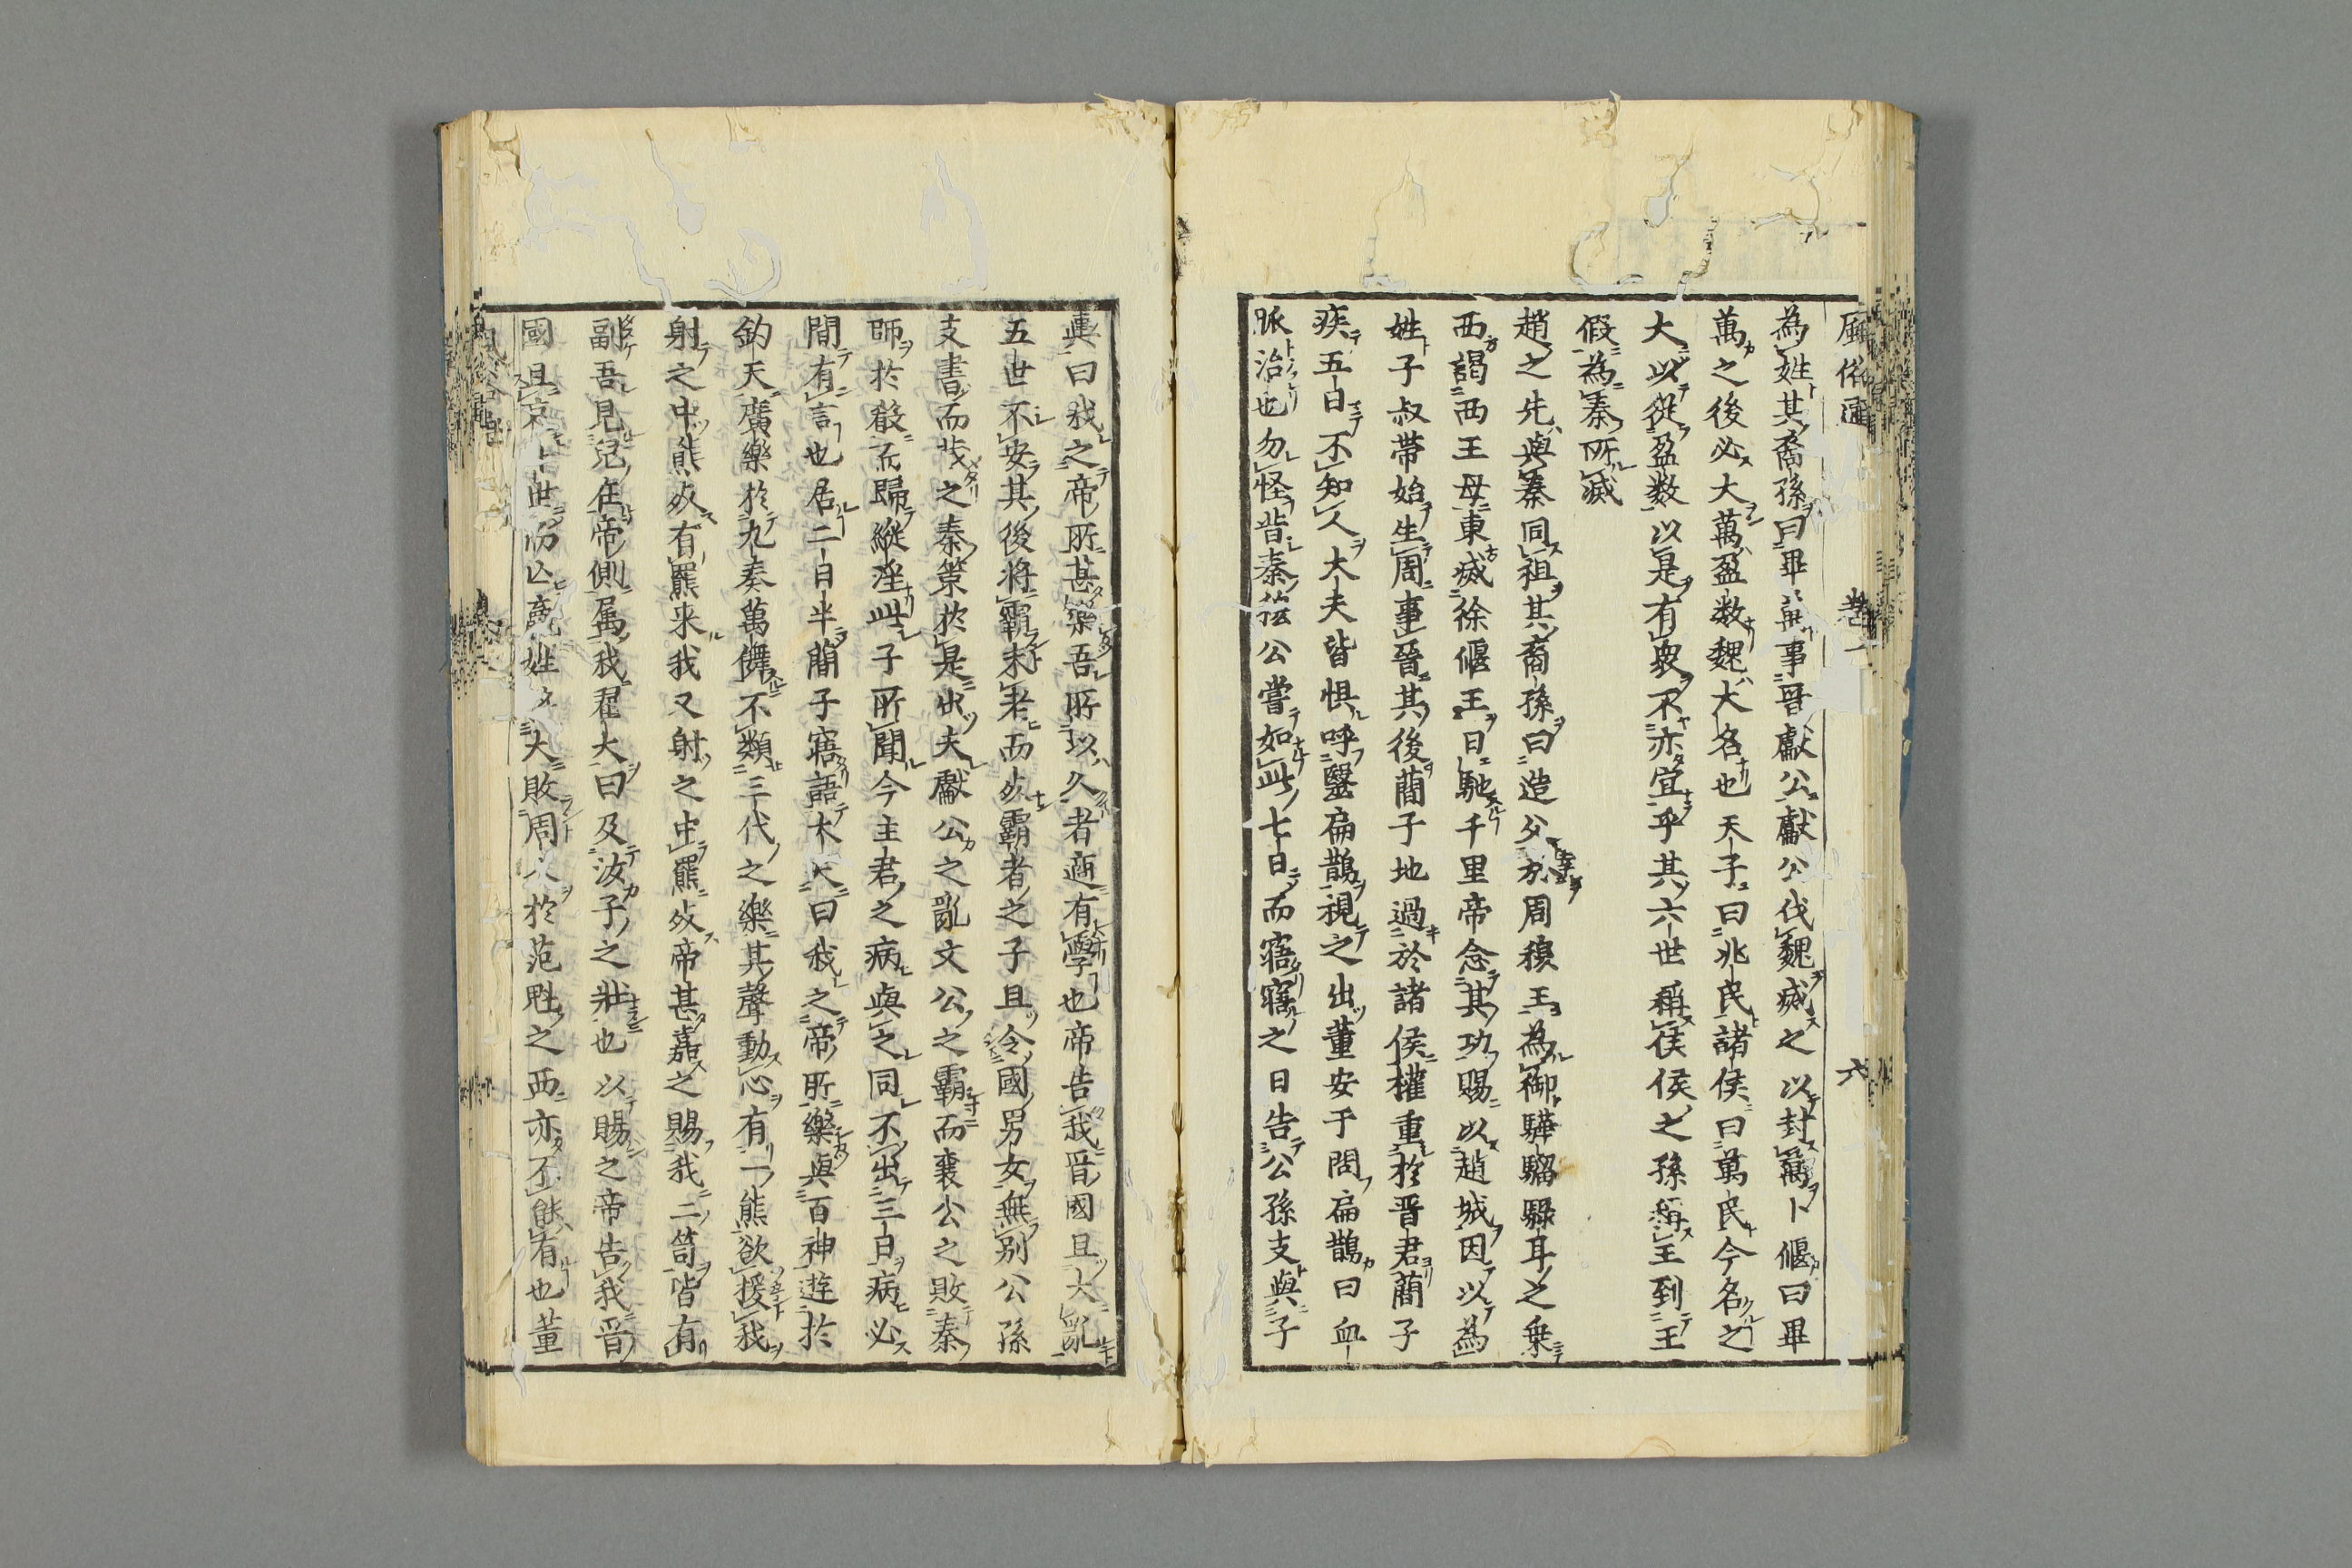 風俗通 卷一 六
為姓其裔孫曰畢萬事晉獻公獻公伐魏滅之以封萬卜偃曰畢
萬之後必大萬盈数魏大名也天子曰兆民諸侯曰萬民今名之
大以從盈数以是有衆不亦宜乎其六世稱侯侯之孫稱王到王
假為秦所滅
趙之先與秦同祖其裔孫曰造父周穆王為御驊騮騄耳之乗
西謁西王母東滅徐偃王日馳千里帝念其功賜以趙城因以為
姓子叔帯始生周事晉其後蕳子地過於諸侯權重於晋君蕳子
疾五日不知人大夫皆惧呼毉扁鵲視之出董安于問扁鵲曰血
脈治也勿怪昔秦公嘗如此七日而寤寤之日告公孫支與子
輿曰我之帝所甚樂吾所以久者適有學也帝告我晋國且大亂
五世不安其後将霸未老而死霸者之子且令國男女無別公孫
支書而藏之秦策於是出夫獻公之亂文公之霸而襄公之敗秦
師於殽而歸縦淫此子所聞今主君之病與之同不出三日病必
間有言也居二日半蕳子寤語大夫曰我之帝所樂與百神遊於
鈞天廣樂於九奏萬儛不類三代之樂其聲動心有一熊欲援我
射之中熊死有羆来我又射之中羆死帝甚嘉之賜我二笥皆有
副吾見兒在帝側属我翟犬曰及汝子之壮也以賜之帝告我晋
國且世姓大敗周人於范魁之西亦不能有也董